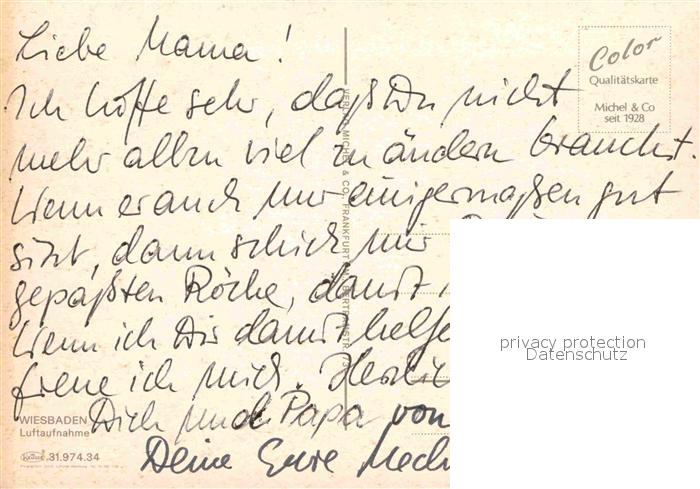 Liebe Mama!
Ich hoffe sehr, daß Du nicht
mehr allzu viel zu ändern brauchst.
Wenn er auch nur einigermaßen gut
sitzt, dann schick mir
gepaßten Röcke, damit
Wenn ich Dir damit helfe
freue ich mich. Herzlic
Dich und Papa von
Deine Eure Mech
Color
Qualitätskarte
Michel & Co
seit 1928
VERLAG MICHEL & CO., FRANKFURT
privacy protection
Datenschutz
WIESBADEN
Luftaufnahme
Krüger 31.974.34